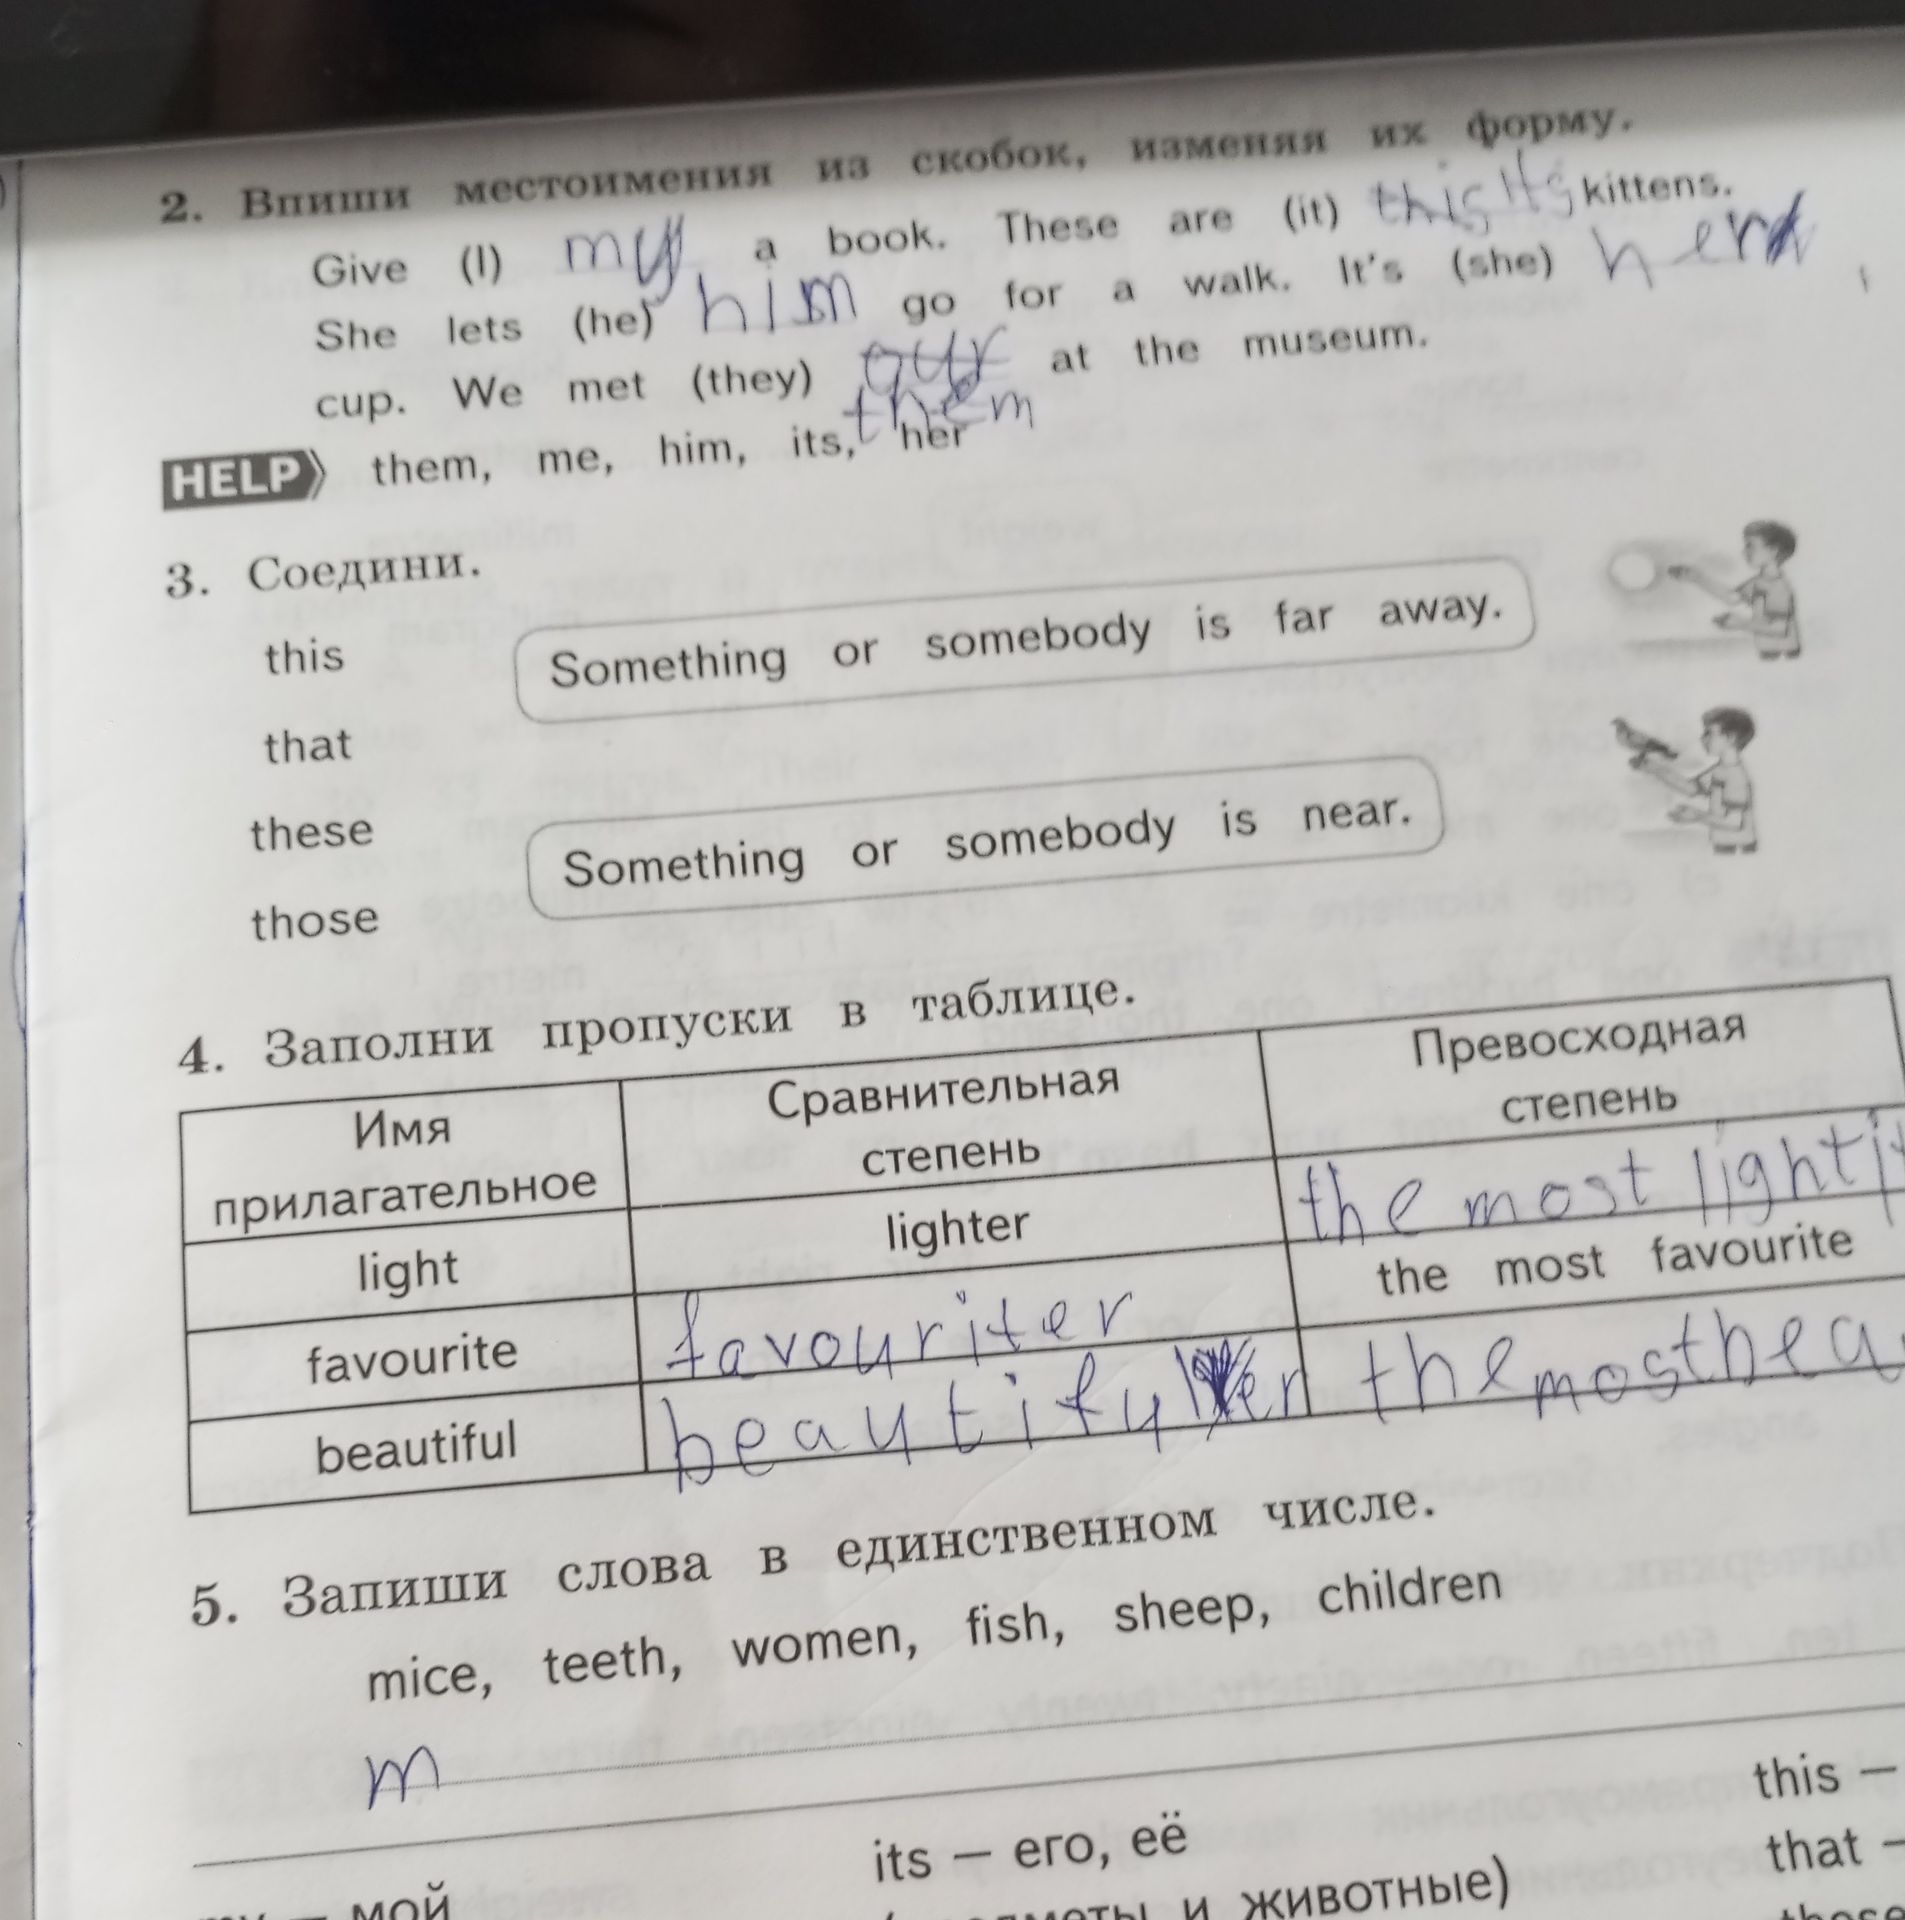 2. Впиши местоимения из скобок, изменяя их форму.
Give (I) my a book. These are (it) this its kittens.
She lets (he) him go for a walk. It's (she) her
cup. We met (they) our at the museum.
them
HELP them, me, him, its, her
3. Соедини.
this
Something or somebody is far away.
that
these
Something or somebody is near.
those
4. Заполни пропуски в таблице.
Имя прилагательное
Сравнительная степень
Превосходная степень
light lighter the most light
favourite favouriter the most favourite
beautiful beautifuler the most bea
5. Запиши слова в единственном числе.
mice, teeth, women, fish, sheep, children
m
its — его, её this —
мой и животные) that —